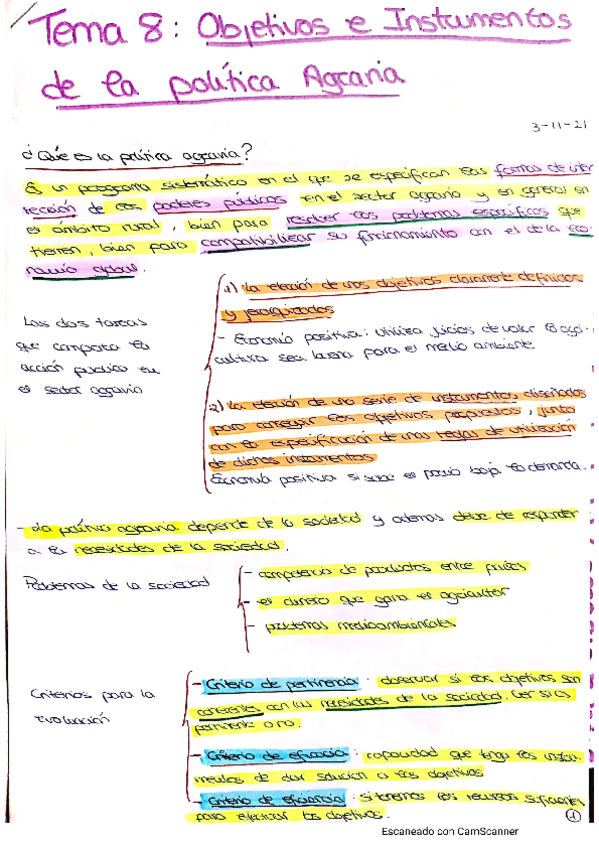 Tema 8: Objetivos e Instrumentos
de la política Agraria
3-11-21
¿Qué es la política agraria?
Es un programa sistemático en el que se especifican las formas de inter
rección de los poderes públicos en el sector agrario y en general en
el ámbito rural, bien para resolver los problemas específicos que
tienen, bien para compatibilizar su funcionamiento con el de la eco
nomía global.
Las dos tareas
que comporta la
acción pública en
el sector agrario
1) La elección de unos objetivos claramente definidos
y jerarquizados
- Economía positiva: utiliza juicios de valor
cultura sea buena para el medio ambiente
2) La elección de una serie de instrumentos diseñados
para conseguir los objetivos propuestos, junto
con la especificación de unas reglas de utilización
de dichos instrumentos
Economía positiva si sube el precio baja la demanda.
- La política agraria depende de la sociedad y además debe de responder
a las necesidades de la sociedad.
Problemas de la sociedad
- competencia de productos entre países
- el dinero que gana el agricultor
- problemas medioambientales
Criterios para la
evaluación
- Criterio de pertinencia: observar si los objetivos son
coherentes con las necesidades de la sociedad. Ver si es
pertinente o no.
- Criterio de eficacia: capacidad que tengo los instru-
mentos de dar solución a los objetivos
- Criterio de eficiencia: si tenemos los recursos suficientes
para efectuar los objetivos.
1
Escaneado con CamScanner